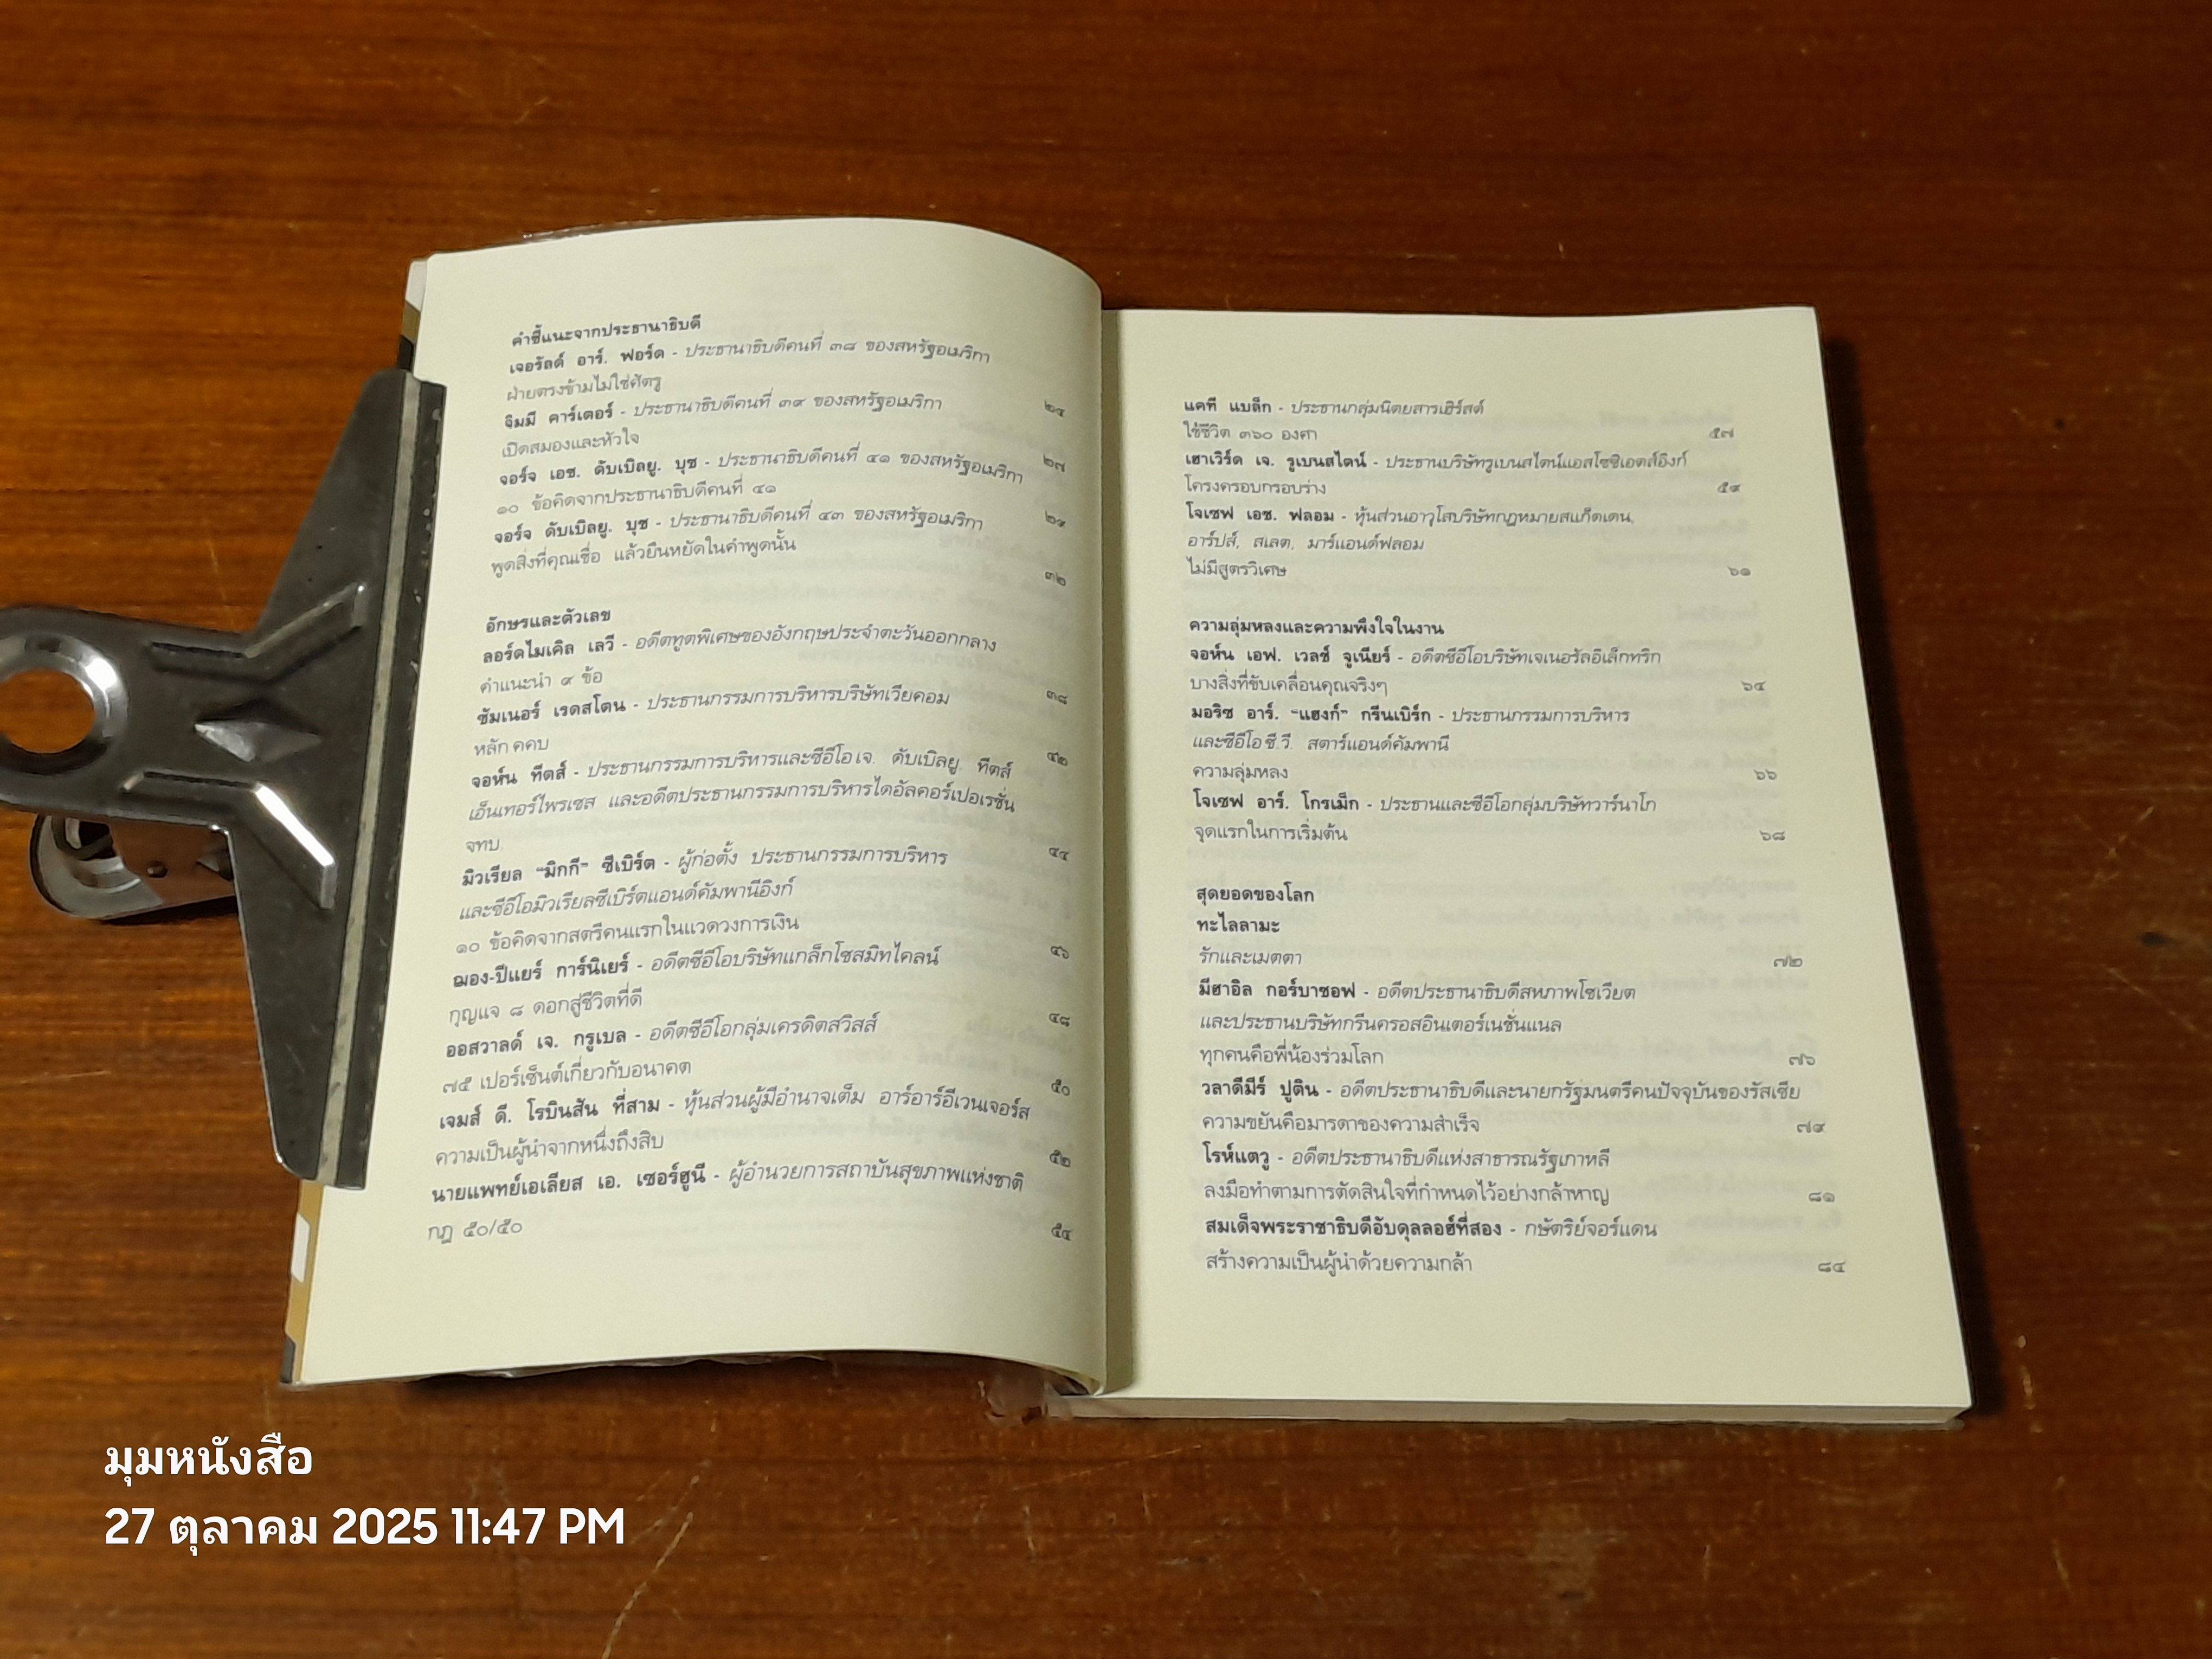 คำชี้แนะจากประธานาธิบดี
เจอรัลด์ อาร์. ฟอร์ด - ประธานาธิบดีคนที่ ๓๘ ของสหรัฐอเมริกา
ฝ่ายตรงข้ามไม่ใช่ศัตรู ๒๔
จิมมี คาร์เตอร์ - ประธานาธิบดีคนที่ ๓๙ ของสหรัฐอเมริกา
เปิดสมองและหัวใจ ๒๗
จอร์จ เอช. ดับเบิลยู. บุช - ประธานาธิบดีคนที่ ๔๑ ของสหรัฐอเมริกา
๑๐ ข้อคิดจากประธานาธิบดีคนที่ ๔๑ ๒๙
จอร์จ ดับเบิลยู. บุช - ประธานาธิบดีคนที่ ๔๓ ของสหรัฐอเมริกา
พูดสิ่งที่คุณเชื่อ แล้วยืนหยัดในคำพูดนั้น ๓๒
อักษรและตัวเลข
ลอร์ดไมเคิล เลวี - อดีตทูตพิเศษของอังกฤษประจำตะวันออกกลาง
คำแนะนำ ๙ ข้อ ๓๘
ซัมเนอร์ เรดสโตน - ประธานกรรมการบริหารบริษัทเวียคอม
หลัก คคบ ๔๒
จอห์น ทีตส์ - ประธานกรรมการบริหารและซีอีโอ เจ. ดับเบิลยู. ทีตส์
เอ็นเทอร์ไพรเซส และอดีตประธานกรรมการบริหารไดอัลคอร์เปอเรชั่น
จทบ. ๔๔
มิวเรียล “มิกกี” ซีเบิร์ต - ผู้ก่อตั้ง ประธานกรรมการบริหาร
และซีอีโอมิวเรียลซีเบิร์ตแอนด์คัมพานีอิงก์
๑๐ ข้อคิดจากสตรีคนแรกในแวดวงการเงิน ๔๖
ฌอง-ปีแยร์ การ์นิเยร์ - อดีตซีอีโอบริษัทแกล็กโซสมิทไคลน์
กุญแจ ๘ ดอกสู่ชีวิตที่ดี ๔๘
ออสวาลด์ เจ. กรูเบล - อดีตซีอีโอกลุ่มเครดิตสวิสส์
๗๕ เปอร์เซ็นต์เกี่ยวกับอนาคต ๕๐
เจมส์ ดี. โรบินสัน ที่สาม - หุ้นส่วนผู้มีอำนาจเต็ม อาร์อาร์อีเวนเจอร์ส
ความเป็นผู้นำจากหนึ่งถึงสิบ ๕๒
นายแพทย์เอเลียส เอ. เซอร์ฮูนี - ผู้อำนวยการสถาบันสุขภาพแห่งชาติ
กฎ ๕๐/๕๐ ๕๔
แคที แบล็ก - ประธานกลุ่มนิตยสารเฮิร์สต์
ใช้ชีวิต ๓๖๐ องศา ๕๗
เฮาเวิร์ด เจ. รูเบนสไตน์ - ประธานบริษัทรูเบนสไตน์แอสโซซิเอตส์อิงก์
โครงครอบกรอบร่าง ๕๙
โจเซฟ เอช. ฟลอม - หุ้นส่วนอาวุโสบริษัทกฎหมายสแก็ดเดน,
อาร์ปส์, สเลต, มาร์แอนด์ฟลอม
ไม่มีสูตรวิเศษ ๖๑
ความลุ่มหลงและความพึงใจในงาน
จอห์น เอฟ. เวลช์ จูเนียร์ - อดีตซีอีโอบริษัทเจเนอรัลอิเล็กทริก
บางสิ่งที่ขับเคลื่อนคุณจริงๆ ๖๔
มอริซ อาร์. “แฮงก์” กรีนเบิร์ก - ประธานกรรมการบริหาร
และซีอีโอ ซี.วี. สตาร์แอนด์คัมพานี
ความลุ่มหลง ๖๖
โจเซฟ อาร์. โกรเม็ก - ประธานและซีอีโอกลุ่มบริษัทวาร์นาโก
จุดแรกในการเริ่มต้น ๖๘
สุดยอดของโลก
ทะไลลามะ
รักและเมตตา ๗๒
มีฮาอิล กอร์บาชอฟ - อดีตประธานาธิบดีสหภาพโซเวียต
และประธานบริษัทกรีนครอสอินเตอร์เนชั่นแนล
ทุกคนคือพี่น้องร่วมโลก ๗๖
วลาดีมีร์ ปูติน - อดีตประธานาธิบดีและนายกรัฐมนตรีคนปัจจุบันของรัสเซีย
ความขยันคือมารดาของความสำเร็จ ๗๙
โรห์แตวู - อดีตประธานาธิบดีแห่งสาธารณรัฐเกาหลี
ลงมือทำตามการตัดสินใจที่กำหนดไว้อย่างกล้าหาญ ๘๑
สมเด็จพระราชาธิบดีอับดุลลอฮ์ที่สอง - กษัตริย์จอร์แดน
สร้างความเป็นผู้นำด้วยความกล้า ๘๔
มุมหนังสือ
27 ตุลาคม 2025 11:47 PM